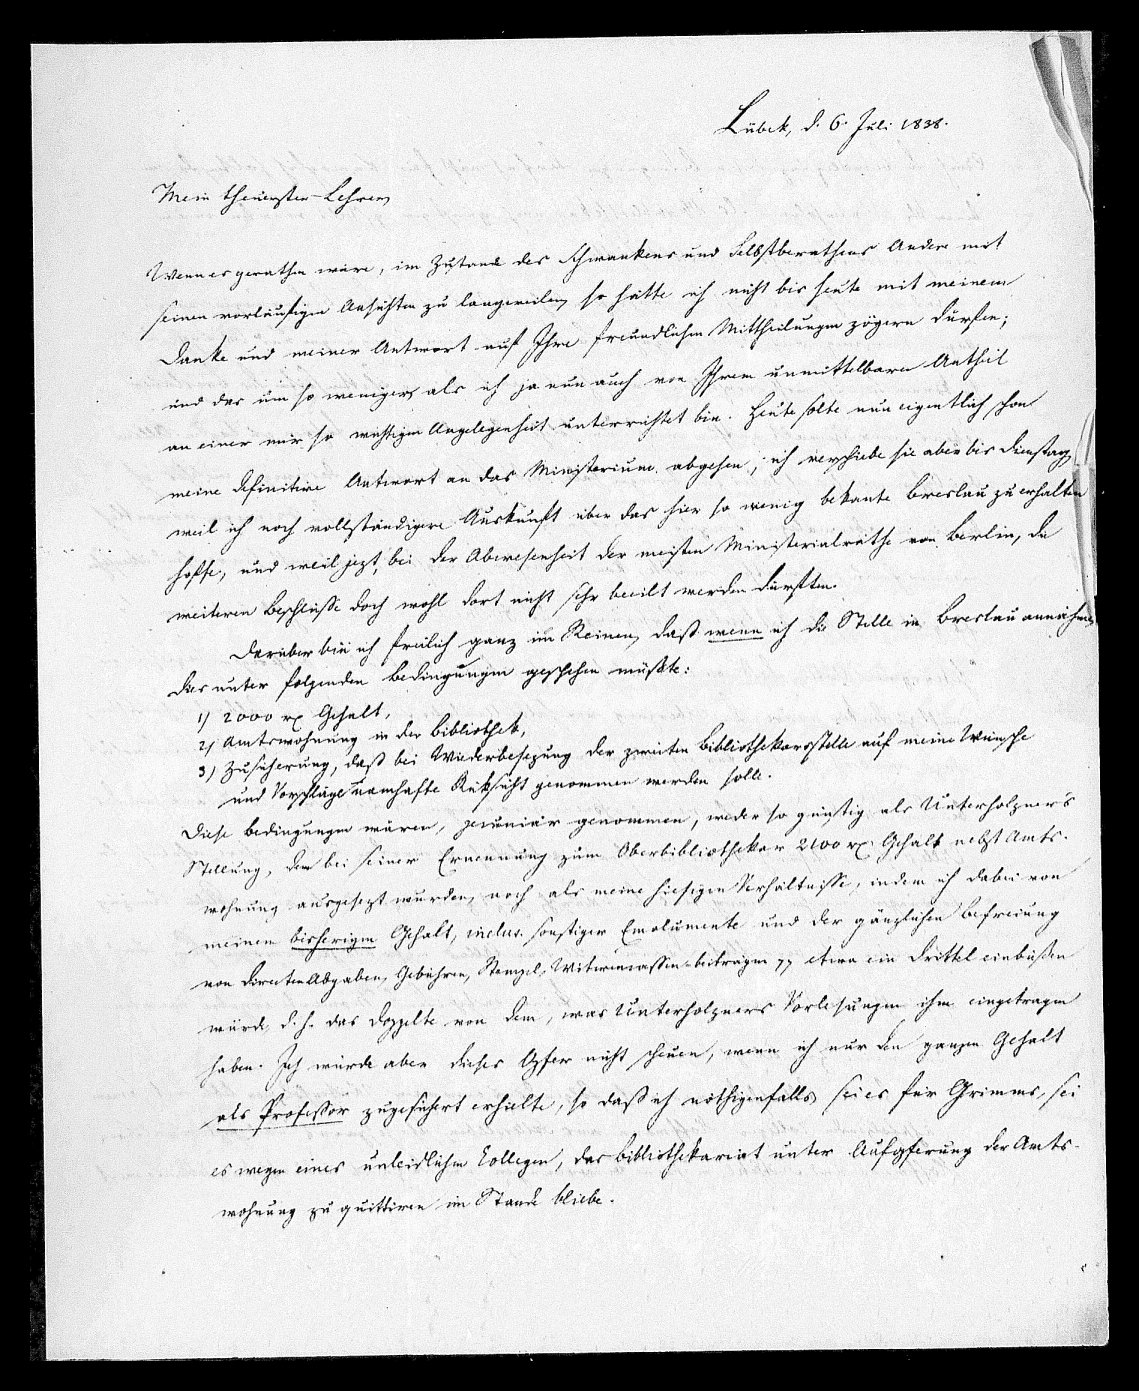 Lübek, d. 6. Juli 1838.
Mein theuerster Lehrer,
Wenn es gerathen wäre, im Zustande des Schwankens und Selbstberathens Andere mit
seinen vorläufigen Ansichten zu langweilen, so hätte ich nicht bis heute mit meinem
Danke und meiner Antwort auf Ihre freundlichen Mittheilungen zögern dürfen;
und das um so weniger, als ich ja nun auch von Ihrem unmittelbaren Antheil
an einer mir so wichtigen Angelegenheit unterrichtet bin. Heute solte nun eigentlich schon
meine definitive Antwort an das Ministerium abgehen; ich verschiebe sie aber bis Dienstag,
weil ich noch vollständigere Auskunft über das hier so wenig bekante Breslau zu erhalten
hoffe, und weil jezt, bei der Abwesenheit der meisten Ministerialräthe von Berlin, die
weiteren Beschlüsse doch wohl dort nicht sehr beeilt werden dürften.
Darüber bin ich freilich ganz im Reinen, daß wenn ich die Stelle in Breslau annähme,
dies unter folgenden Bedingungen geschehen müßte:
1) 2000 rx Gehalt,
2) Amtswohnung in der Bibliothek,
3) Zusicherung, daß bei Wiederbesezung der zweiten Bibliothekarsstelle auf meine Wünsche
und Vorschläge namhafte Rüksicht genommen werden solle.
Diese Bedingungen wären, pecuniär genommen, weder so günstig als Unterholzner's
Stellung, dem bei seiner Ernennung zum Oberbibliothekar 2100 rx. Gehalt nebst Amts-
wohnung ausgesezt wurden, noch als meine hiesigen Verhältnisse, indem ich dabei von
meinem bisherigen Gehalt, inclus. sonstiger Emolumente und der gänzlichen Befreiung
von directen Abgaben, Gebühren, Stempel, Witwencassen-beiträgen pp etwa ein Drittel einbüßen
würde, d. h. das Doppelte von dem, was Unterholzners Vorlesungen ihm eingetragen
haben. Ich würde aber dieses Opfer nicht scheuen, wenn ich nur den ganzen Gehalt
als Professor zugesichert erhielte, so daß ich nöthigenfalls, sei es für Grimms, sei
es wegen eines unleidlichen Collegen, das Bibliothekariat unter Aufopferung der Amts-
wohnung zu quittiren im Stande bliebe.